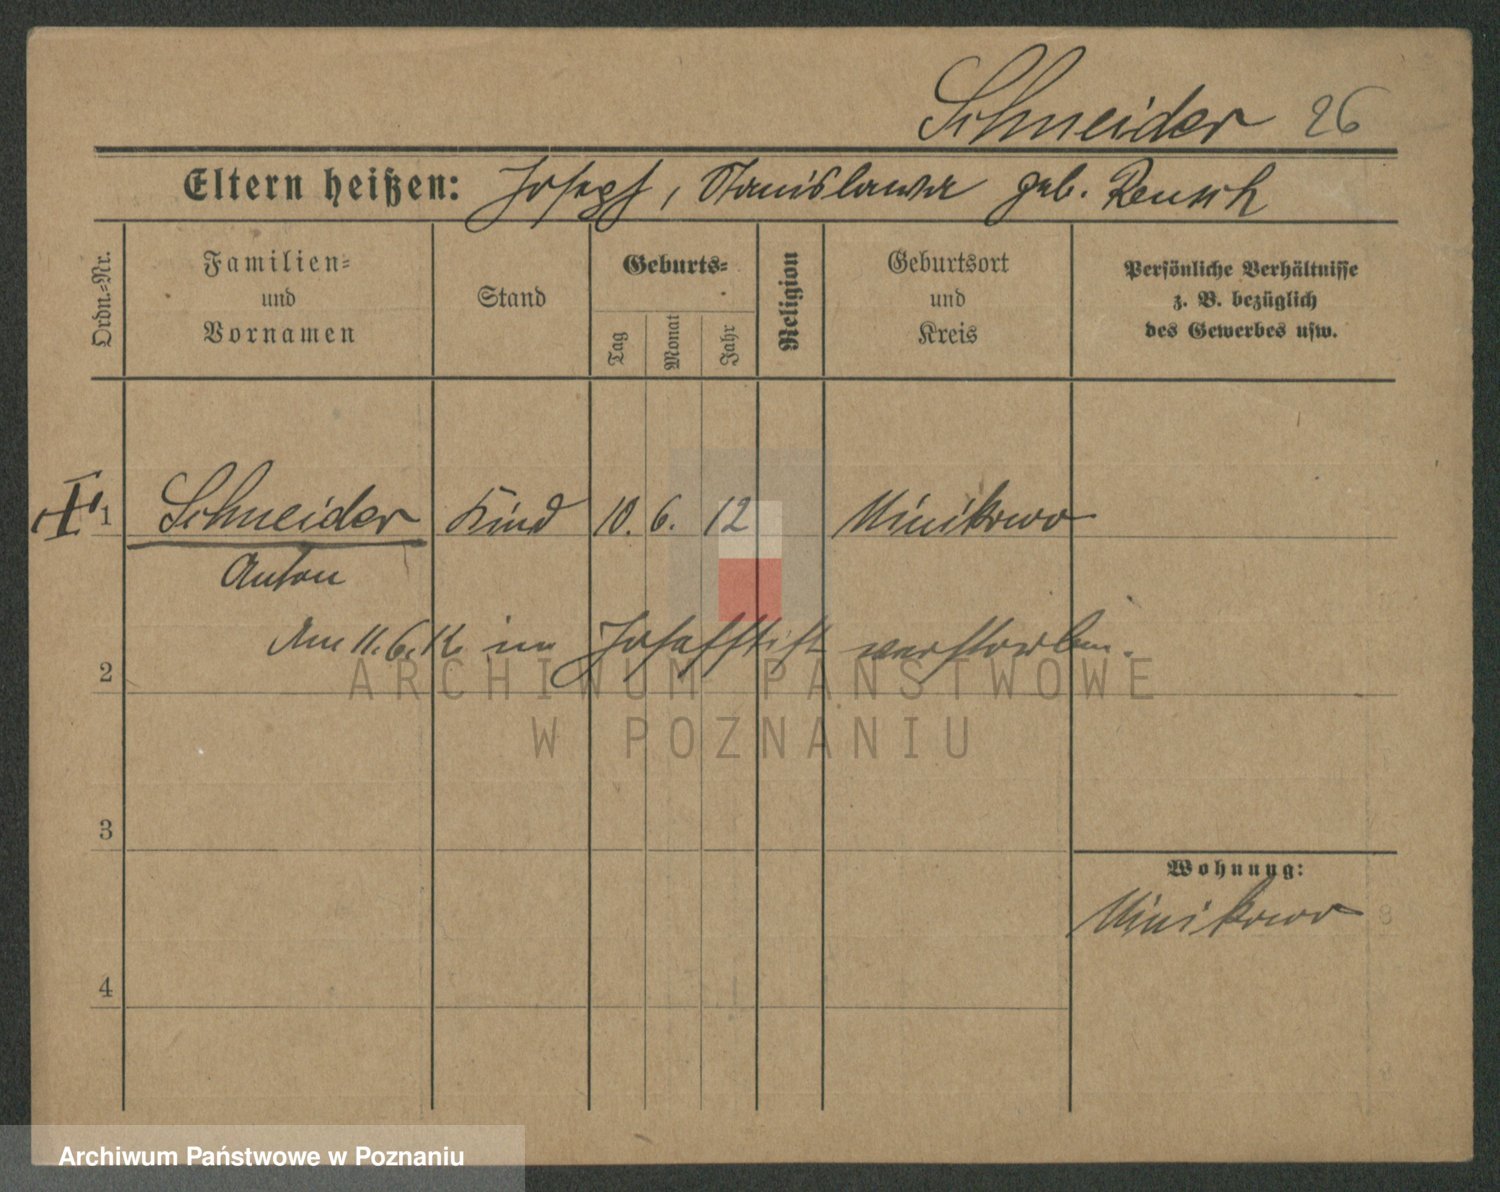 Schneider 26
Eltern heißen: Joseph, Stanislawa geb.
Ordn.=Nr.
Familien=
und
Vornamen
Stand
Geburts=
Tag
Monat
Jahr
Religion
Geburtsort
und
Kreis
Persönliche Verhältnisse
z. B. bezüglich
des Gewerbes usw.
1 Schneider Kind 10. 6. 12 Minikowo
Anton
Am 11.6.12. im Josefstift verstorben.
2
ARCHIWUM PAŃSTWOWE
W POZNANIU
3
Wohnung:
Minikowo
4
Archiwum Państwowe w Poznaniu